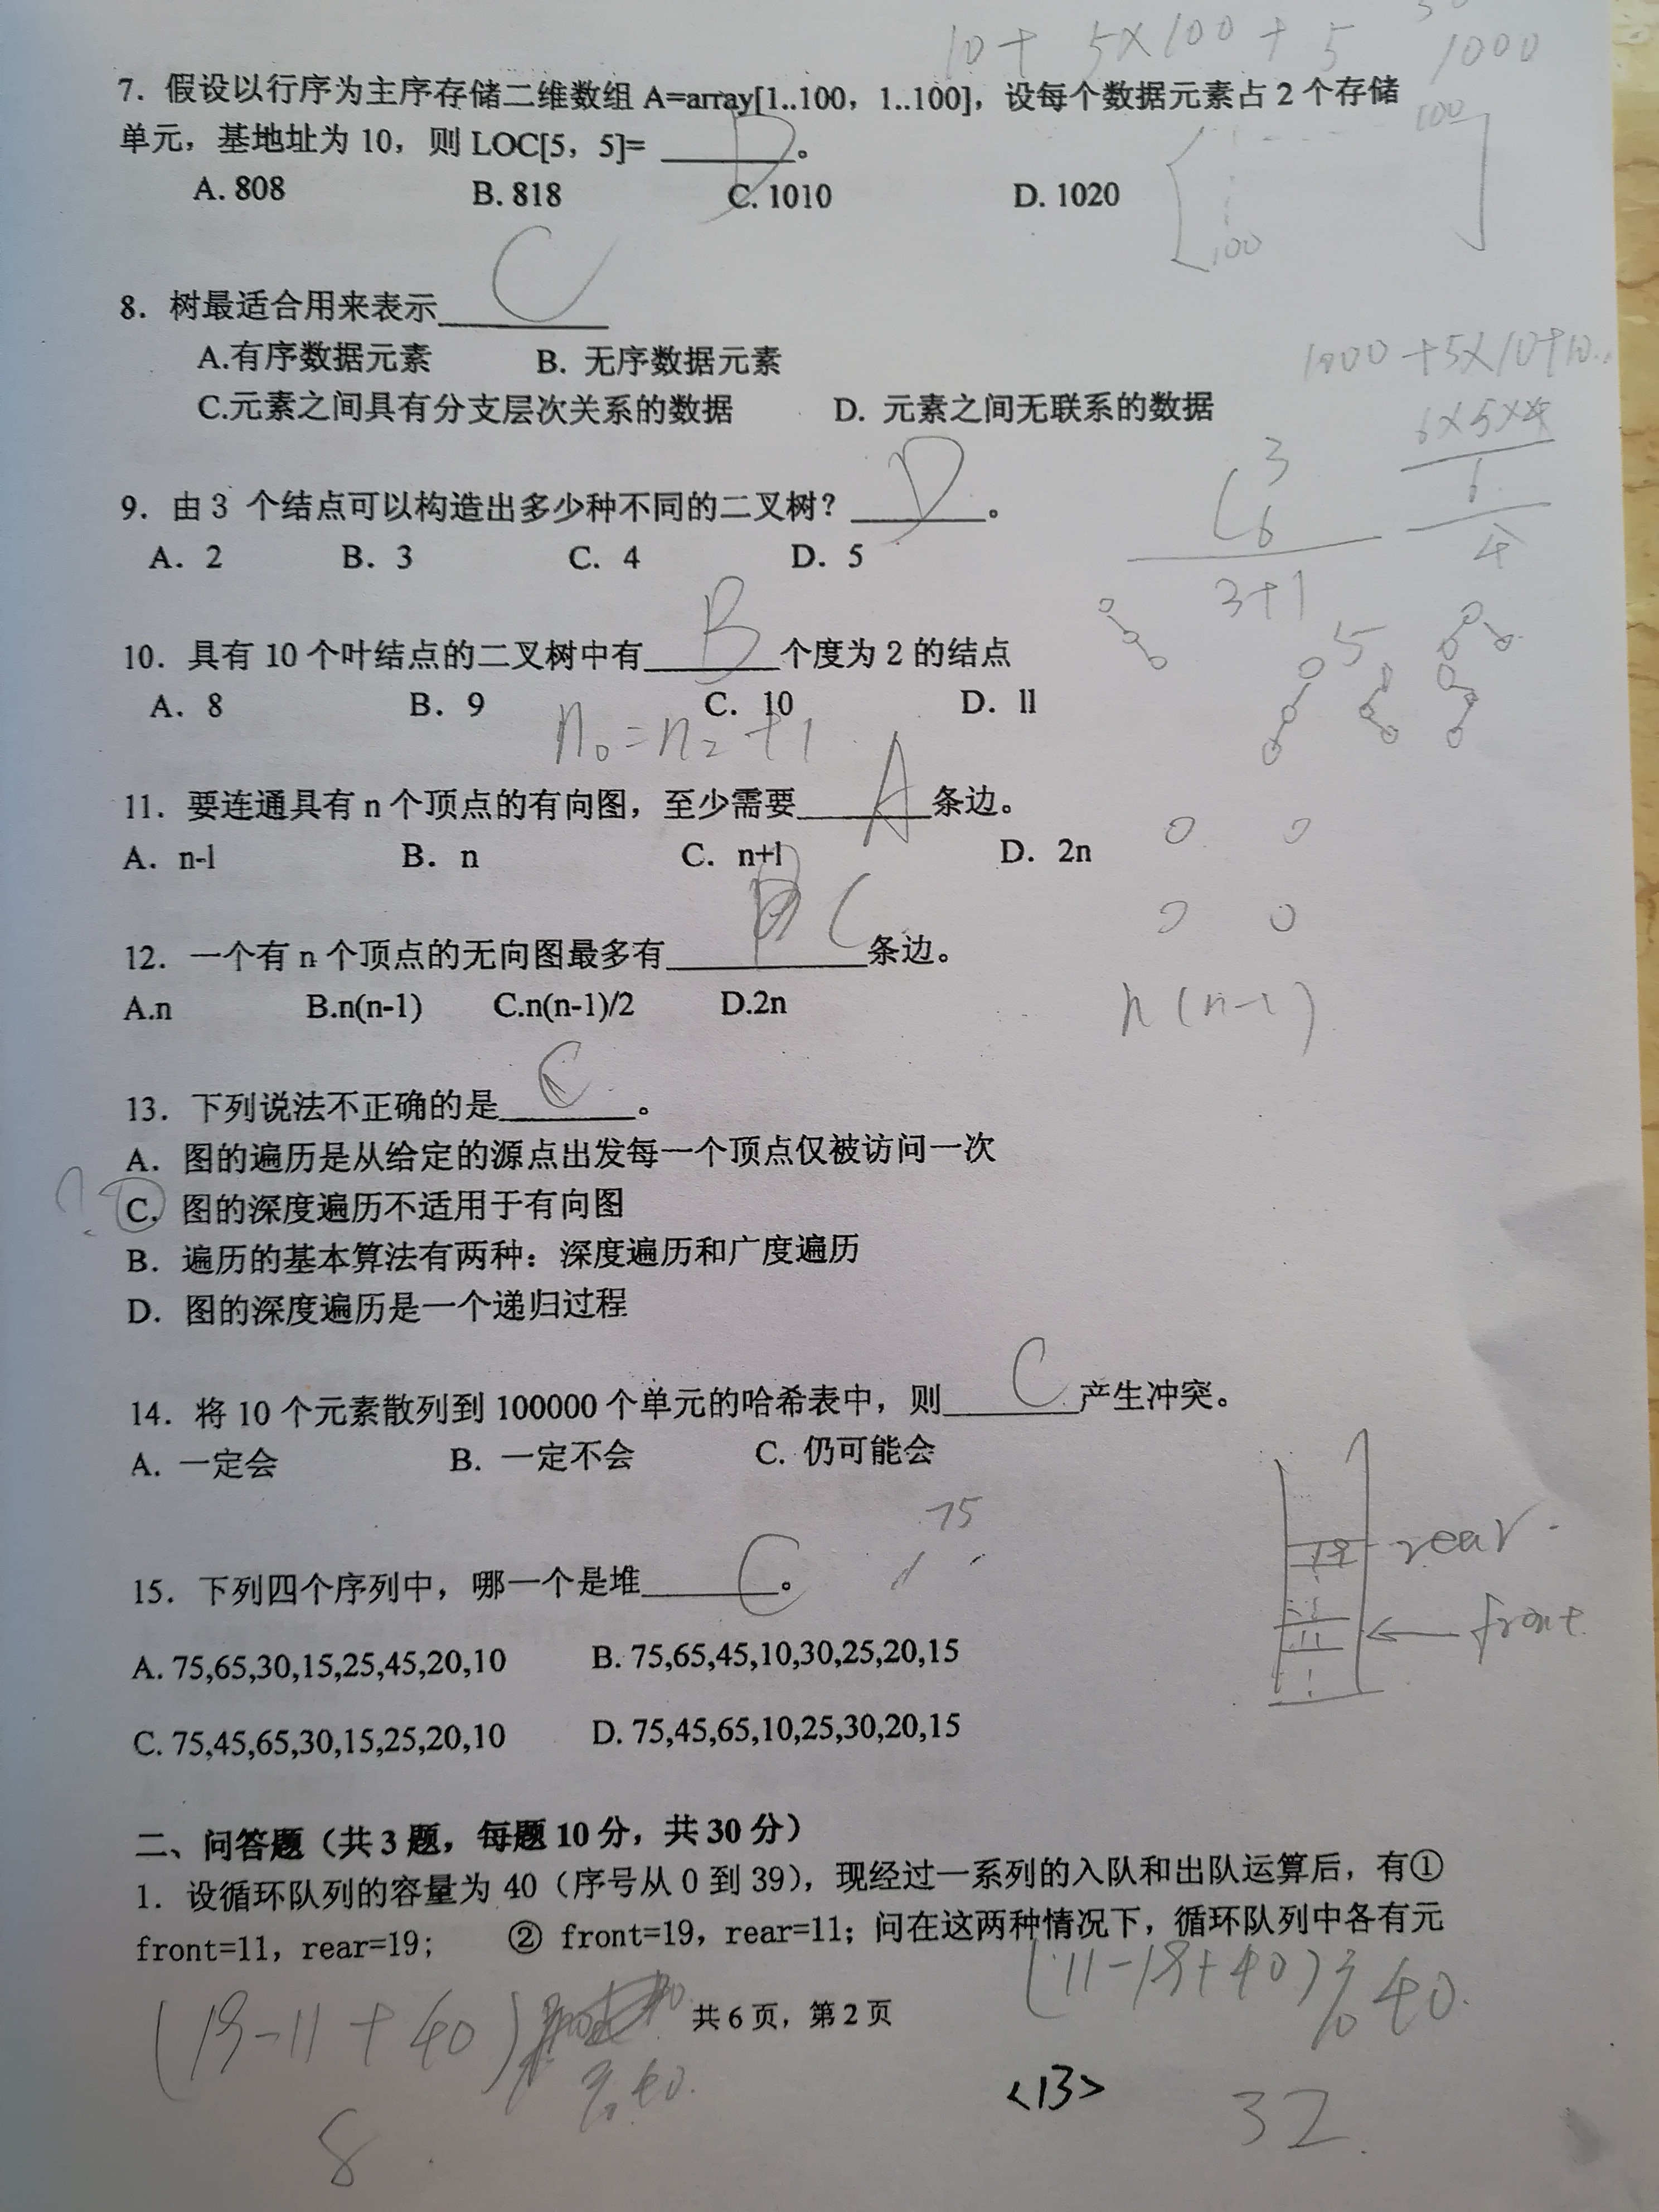 10+ 5×100+5
1000
7. 假设以行序为主序存储二维数组 A=array[1..100，1..100]，设每个数据元素占 2 个存储
单元，基地址为 10，则 LOC[5，5]= ________。
D
100
A. 808 B. 818 C. 1010 D. 1020
100
C
8. 树最适合用来表示________
A.有序数据元素 B. 无序数据元素
1000+5×10+10
C.元素之间具有分支层次关系的数据 D. 元素之间无联系的数据
6×5×4
6
4
C 3 6
3+1
D
9. 由 3 个结点可以构造出多少种不同的二叉树？________。
A. 2 B. 3 C. 4 D. 5
B
5
10. 具有 10 个叶结点的二叉树中有________个度为 2 的结点
A. 8 B. 9 C. 10 D. ll
n0=n2+1
A
11. 要连通具有 n 个顶点的有向图，至少需要________条边。
A. n-l B. n C. n+l D. 2n
C
12. 一个有 n 个顶点的无向图最多有________条边。
A.n B.n(n-1) C.n(n-1)/2 D.2n
n(n-1)
C
13. 下列说法不正确的是________。
A. 图的遍历是从给定的源点出发每一个顶点仅被访问一次
? C. 图的深度遍历不适用于有向图
B. 遍历的基本算法有两种：深度遍历和广度遍历
D. 图的深度遍历是一个递归过程
C
14. 将 10 个元素散列到 100000 个单元的哈希表中，则________产生冲突。
A. 一定会 B. 一定不会 C. 仍可能会
75
C
15. 下列四个序列中，哪一个是堆________。
19 rear
11 front
A. 75,65,30,15,25,45,20,10 B. 75,65,45,10,30,25,20,15
C. 75,45,65,30,15,25,20,10 D. 75,45,65,10,25,30,20,15
二、问答题（共 3 题，每题 10 分，共 30 分）
1. 设循环队列的容量为 40（序号从 0 到 39），现经过一系列的入队和出队运算后，有①
front=11，rear=19； ② front=19，rear=11；问在这两种情况下，循环队列中各有元
(19-11+40)
%40.
(11-19+40)%40.
共 6 页，第 2 页
<13>
8
32